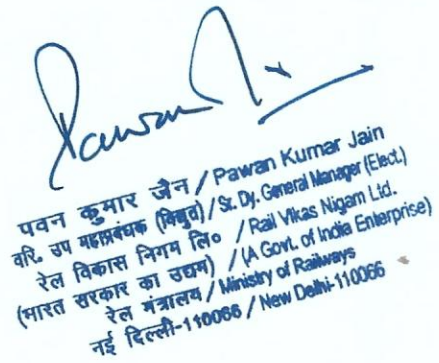 Pawan
पवन कुमार जैन / Pawan Kumar Jain
वरि. उप महाप्रबंधक (विद्युत) / Sr. Dy. General Manager (Elect.)
रेल विकास निगम लि० / Rail Vikas Nigam Ltd.
(भारत सरकार का उद्यम) / (A Govt. of India Enterprise)
रेल मंत्रालय / Ministry of Railways
नई दिल्ली-110066 / New Delhi-110066